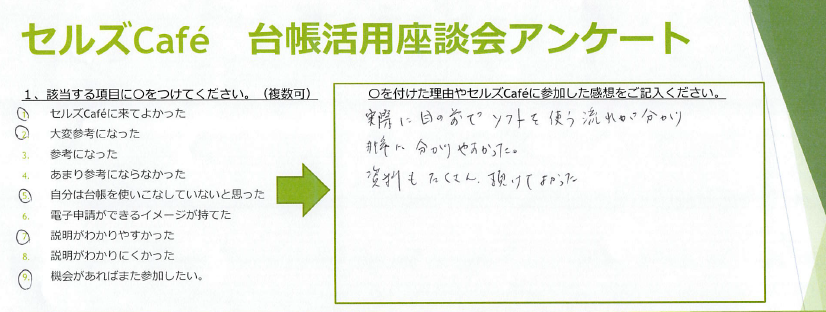 セルズCafé 台帳活用座談会アンケート
1、該当する項目に〇をつけてください。（複数可）
1. セルズCaféに来てよかった
2. 大変参考になった
3. 参考になった
4. あまり参考にならなかった
5. 自分は台帳を使いこなしていないと思った
6. 電子申請ができるイメージが持てた
7. 説明がわかりやすかった
8. 説明がわかりにくかった
9. 機会があればまた参加したい。
〇を付けた理由やセルズCaféに参加した感想をご記入ください。
実際に目の前でソフトを使う流れが分かり
非常に分かりやすかった。
資料もたくさん頂けてよかった